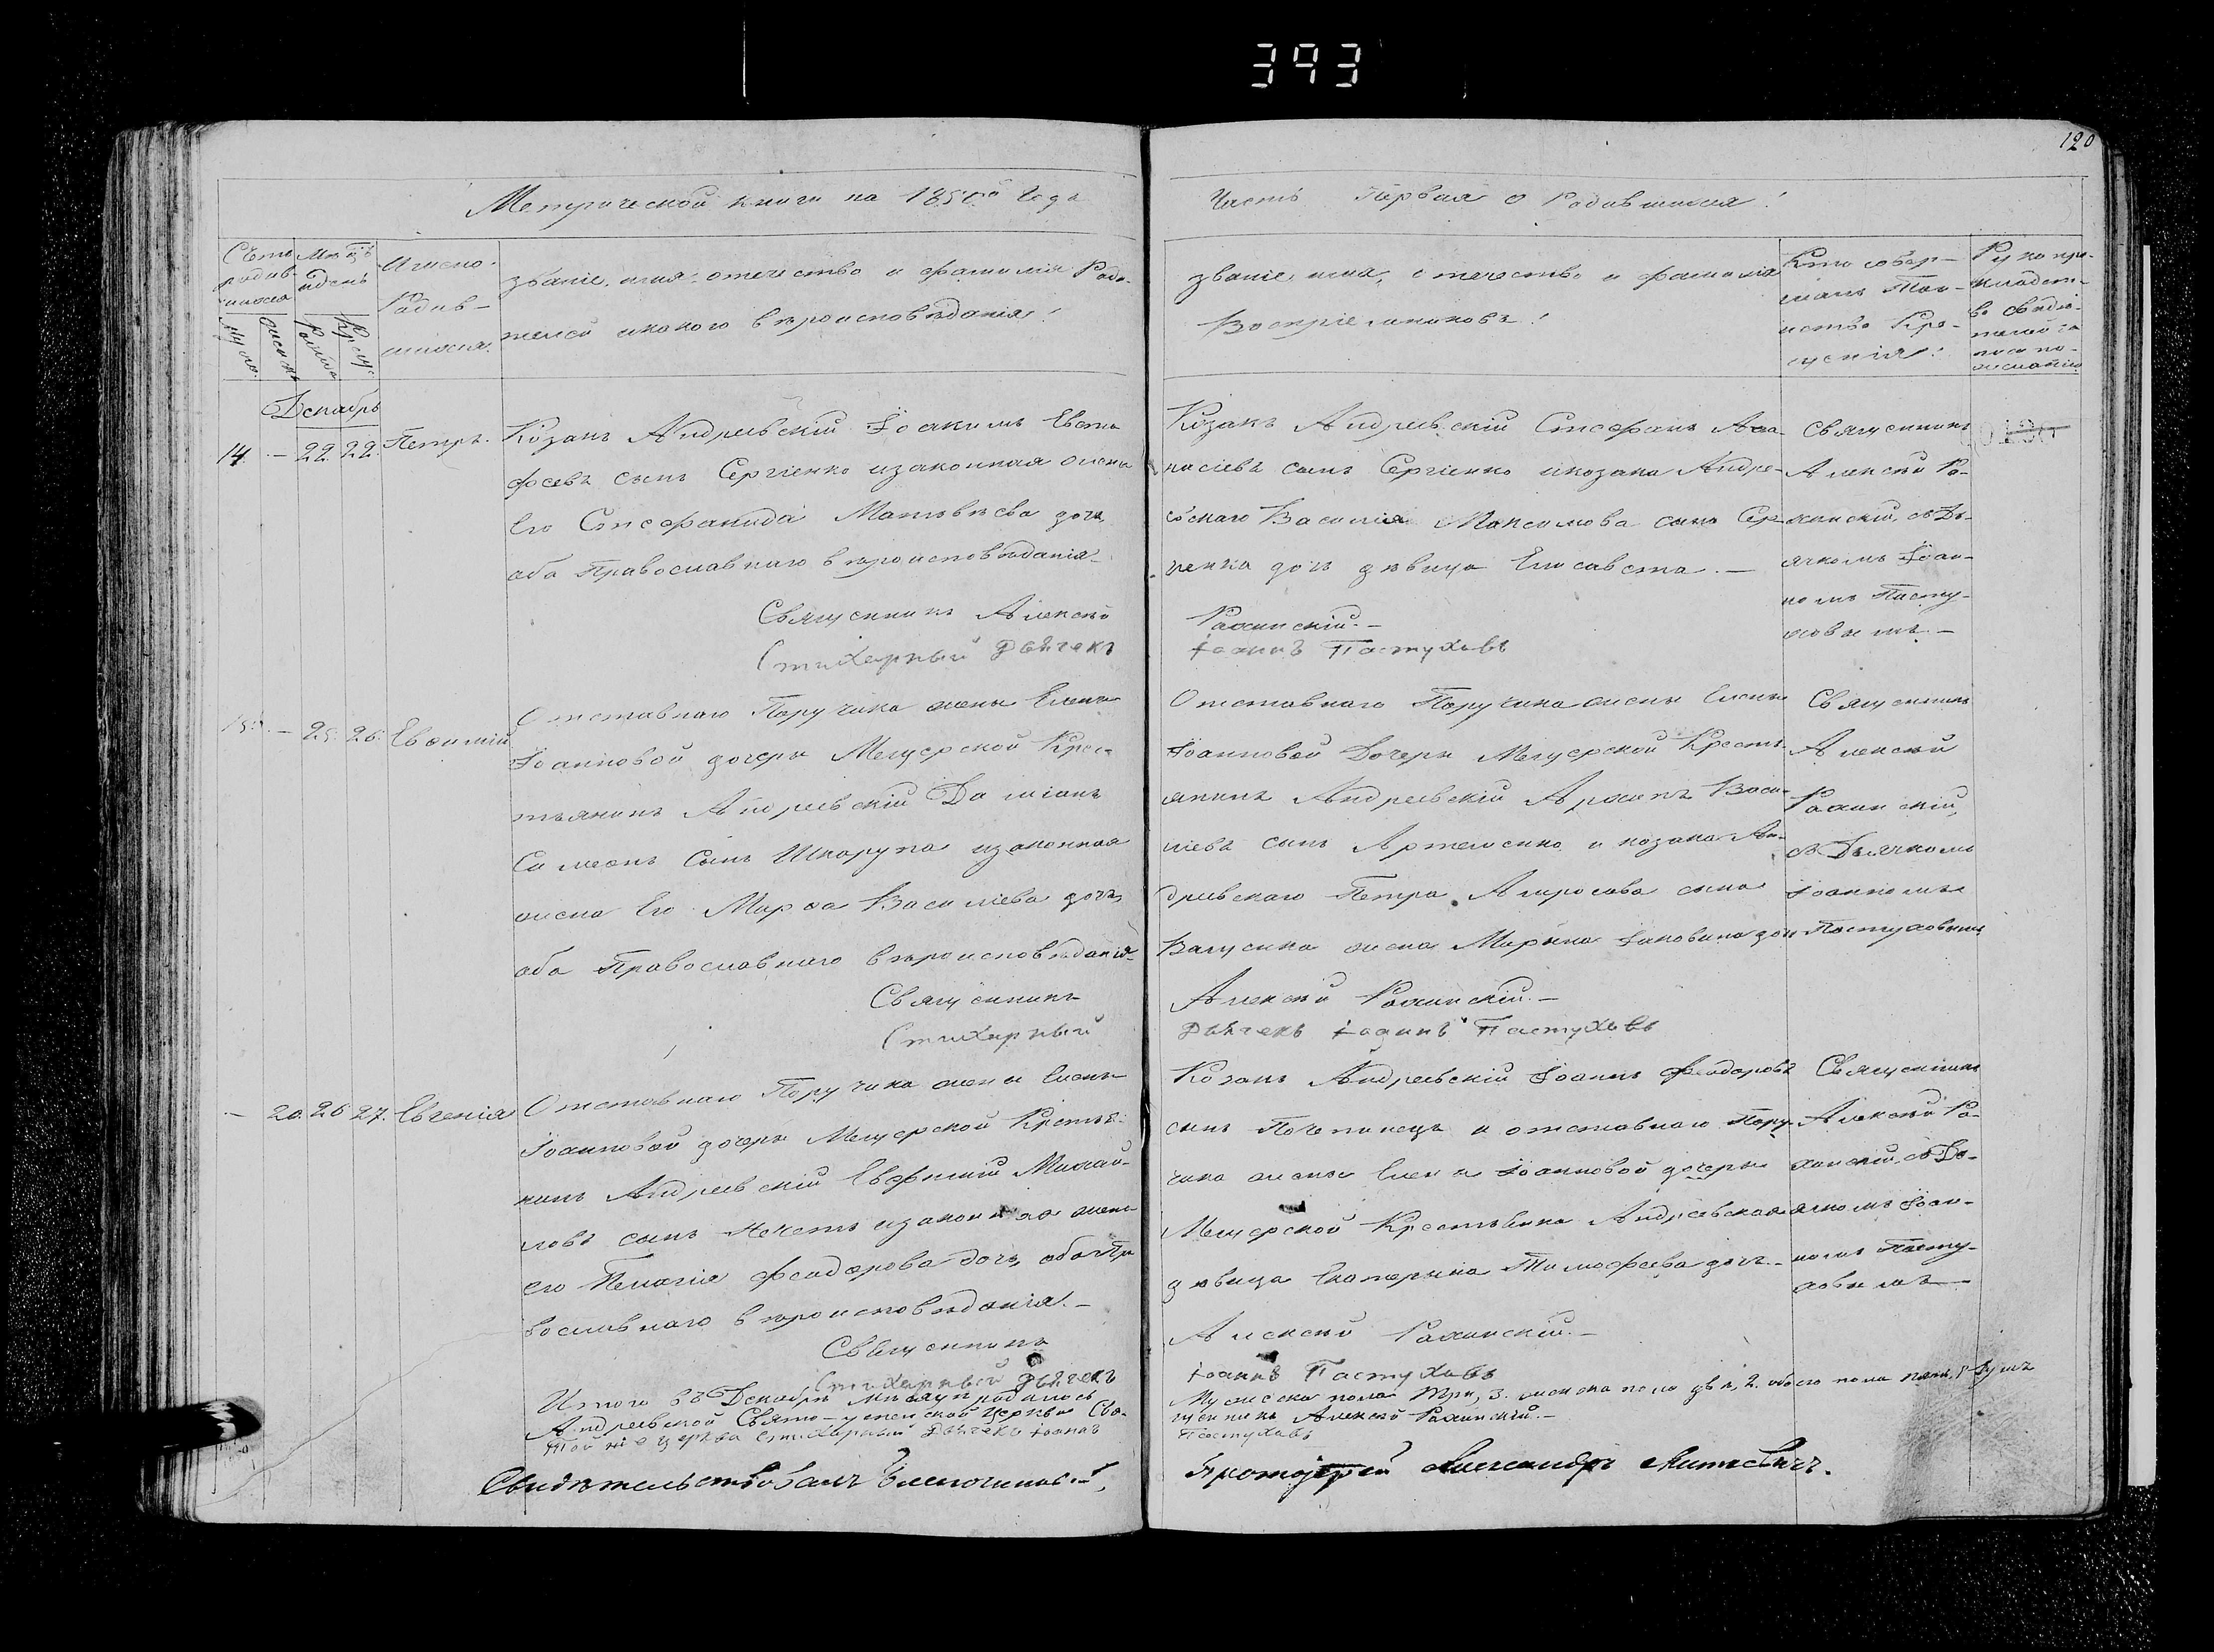 393
120
Метрической книги на 1850й Года
Часть Первая О Родившихся!
Счетъ родив-шихся
Мужс.
Женска
Мѣ-цъ и день
Рожден.
Крещ.
Имена Родив-шихся.
Званіе, имя, отечество и фамилія Роди-
телей и какого вѣроисповѣданія!
Званіе, имя, отечество и фамилія
Воспріемниковъ!
Кто совер-
шалъ Таи-
нство Кре-
щенія!
Рукопри-
кладст-
во свидѣ-
телей за-
писи по
желанію
Декабрь
14. — 22. 22. Петръ.
Козакъ Андреевскій Іоакимъ Евста
фіевъ сынъ Сергіенко и законная жена
Его Стефанида Матвѣева дочь,
оба Православнаго вѣроисповѣданія.
Священникъ Алексѣй
Стихарный Дьячекъ
Козакъ Андреевскій Стефанъ Аѳа-
насіевъ сынъ Сергіенко и козака Андре-
евскаго Василія Максимова сына Сер-
гіенка дочь дѣвица Елисавета. —
Рахинскій. —
Іоаннъ Пастуховъ
Священникъ
Алексѣй Ра-
хинскій, съ Дь-
ячкомъ Іоан-
номъ Пасту-
ховымъ. —
15. — 25. 26. Евѳимій
Отставнаго Поручика жены Елены
Іоанновой дочери Мещерской Крес-
тьянинъ Андреевскій Даміанъ
Симеонъ Сынъ Шкарупа и законная
жена Его Марѳа Василіева дочь,
оба Православнаго вѣроисповѣданія.
Священникъ
Стихарный
Отставнаго Поручика жены Елены
Іоанновой Дочери Мещерской Кресть-
янинъ Андреевскій Архипъ Васи-
ліевъ сынъ Артеменко и козака Ан-
дреевскаго Петра Амросова сына
Ващенка жена Марина Іаковина дочь
Алексѣй Рахинскій. —
Дьячекъ Іоаннъ Пастуховъ
Священникъ
Алексѣй
Рахинскій,
съ Дьячкомъ
Іоанномъ
Пастуховымъ
— 20. 26 27. Евгенія
Отставнаго Поручика жены Елены
Іоанновой дочери Мещерской Крестья-
нинъ Андреевскій Евфимій Михай-
ловъ сынъ и законная жена
его Пелагія Феодорова дочь, оба Пра
вославнаго вѣроисповѣданія. —
Священникъ
Стихарный Дьячекъ
Козакъ Андреевскій Іоаннъ Феодоровъ
сынъ и отставнаго Пору-
чика жены Елены Іоанновой дочери
Мещерской Крестьянка Андреевская
дѣвица Екатерина Тимофеева дочь. —
Алексѣй Рахинскій. —
Іоаннъ Пастуховъ
Священникъ
Алексѣй Ра-
хинскій, съ Дь-
ячкомъ Іоан-
номъ Пасту-
ховымъ —
Итого въ Декабрѣ мѣсяцѣ родилось
Мужеска пола три, 3. женска пола двѣ, 2. обоего пола пять, 5 душъ
Андреевской Свято-Успенской Церкви Свя-
щенникъ Алексѣй Рахинскій. —
Той же церкви Стихарный Дьячекъ Іоаннъ
Пастуховъ
Свидѣтельствовалъ Благочинный,
Протоіерей Александръ